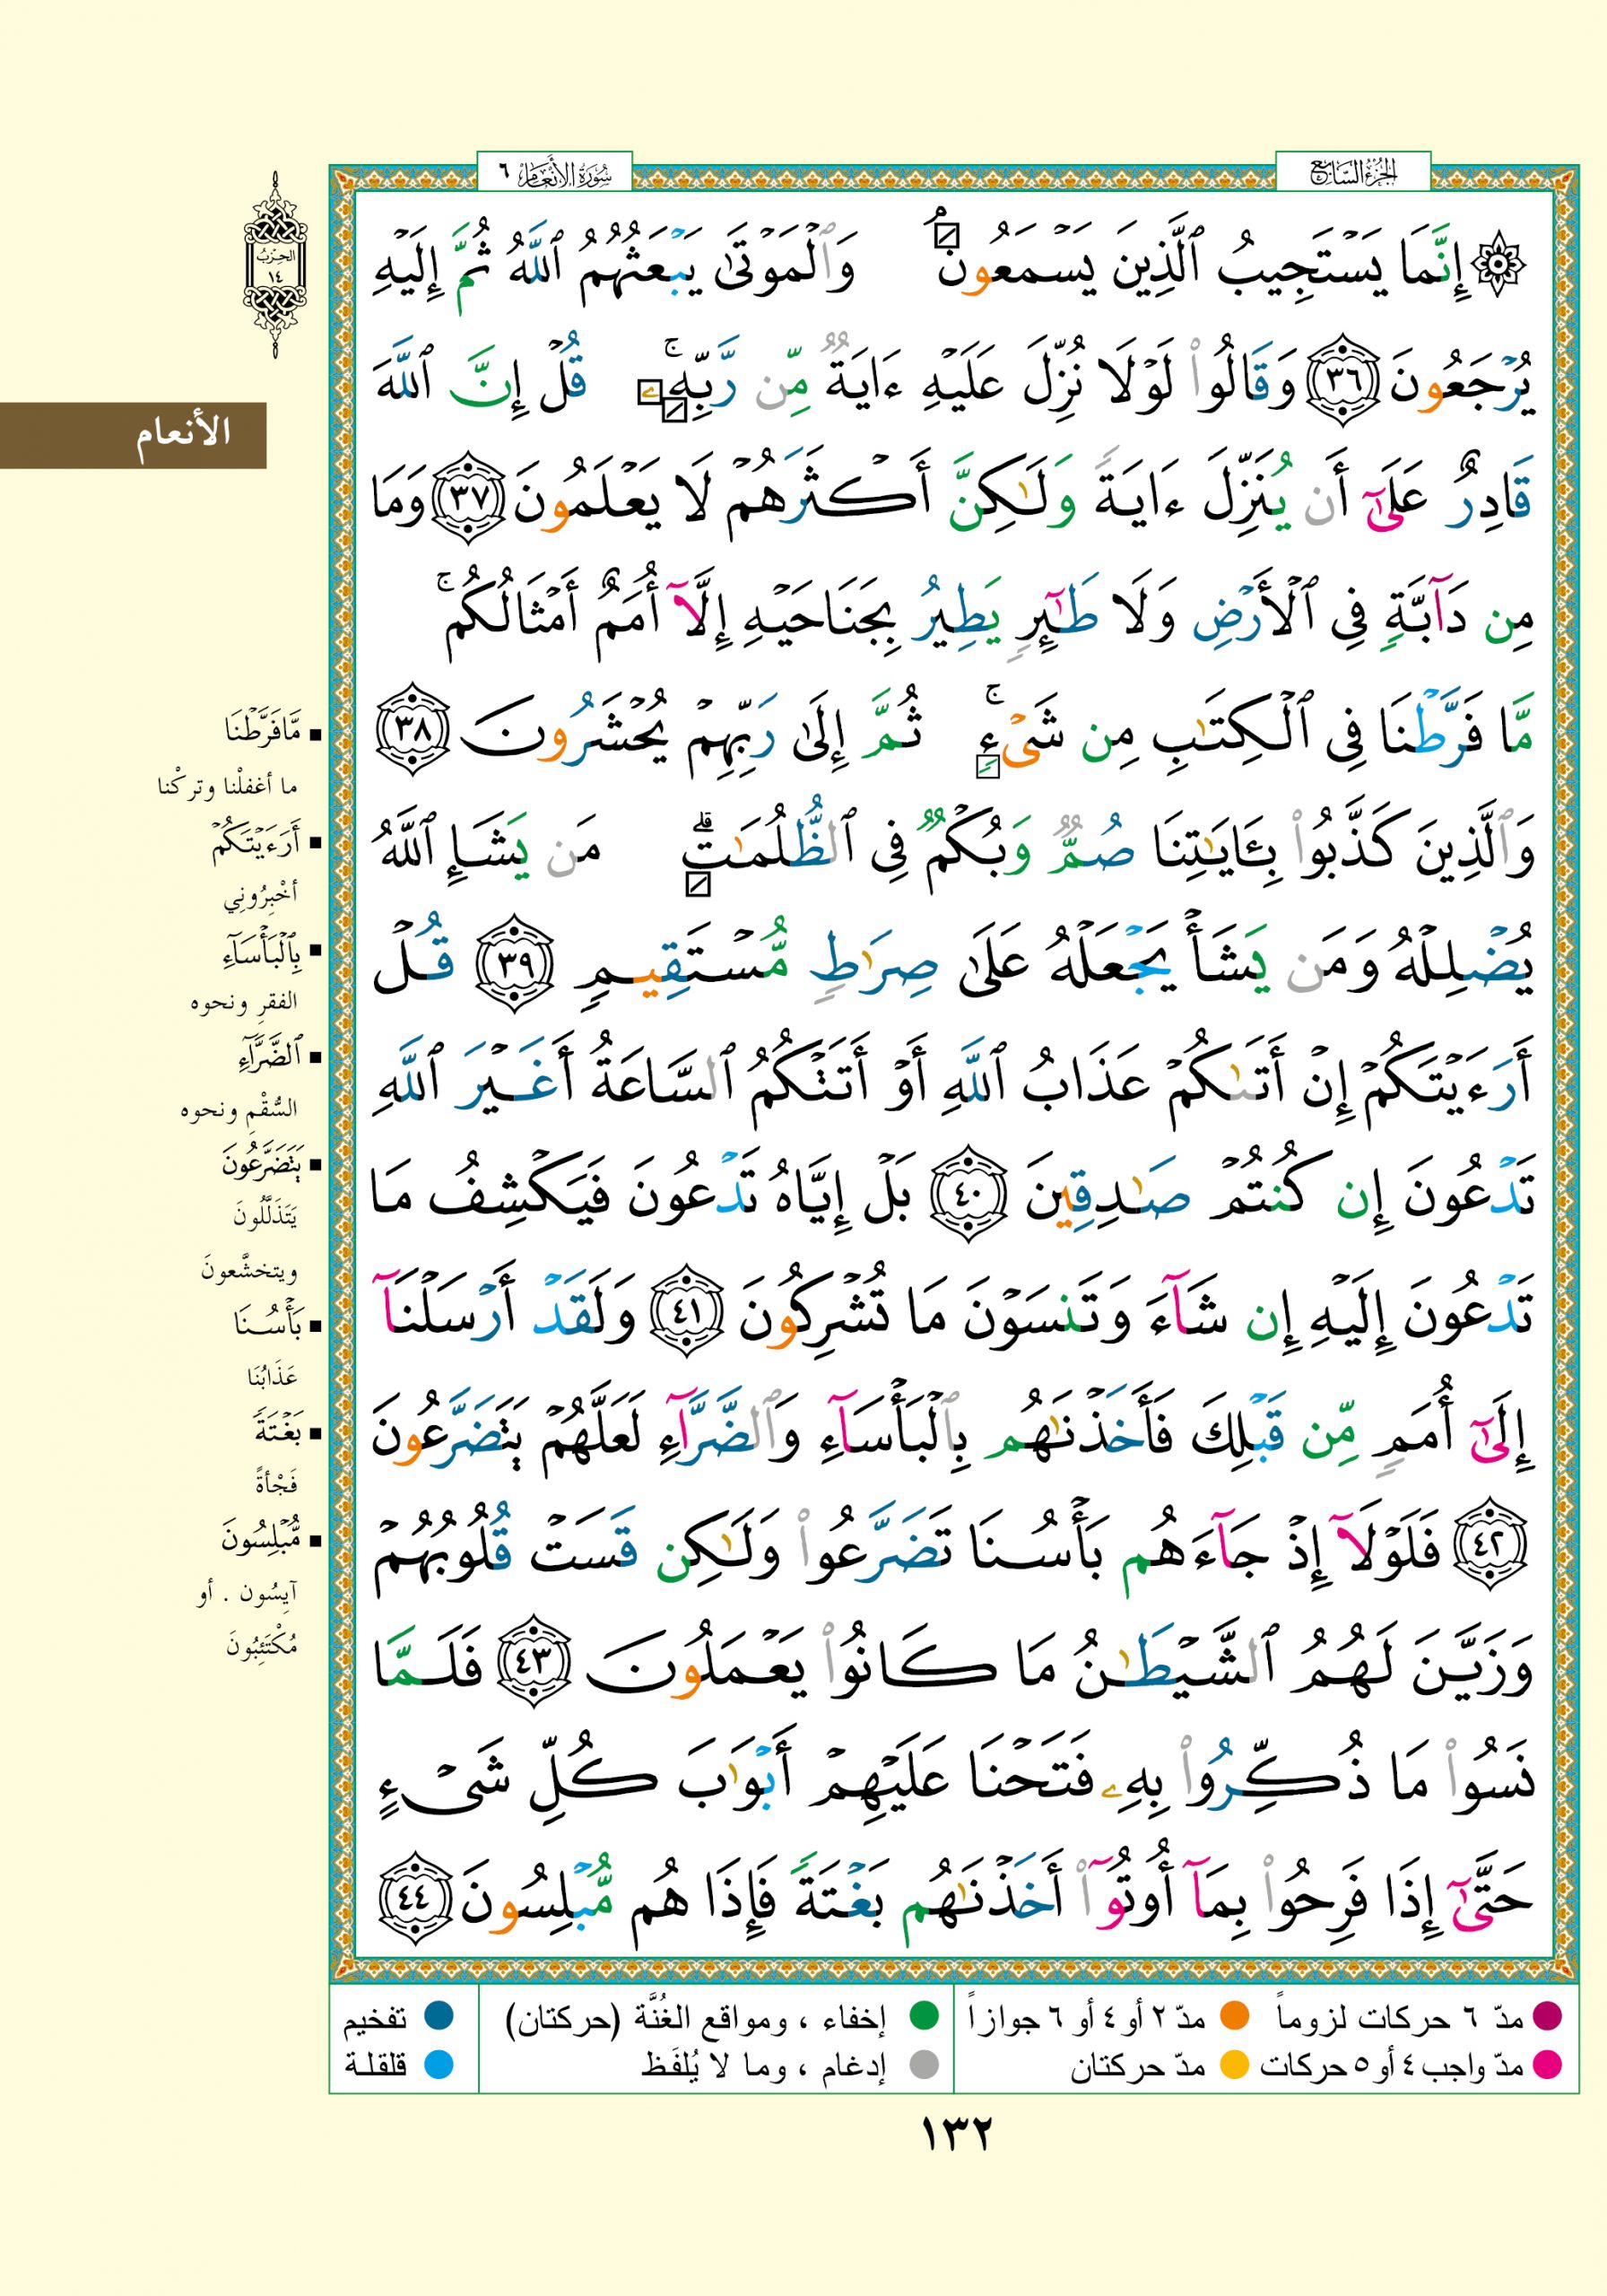 الجزء السابع
سورة الأنعام ٦
الحزب
١٤
الأنعام
۞ إِنَّمَا يَسْتَجِيبُ ٱلَّذِينَ يَسْمَعُونَ ۘ وَٱلْمَوْتَىٰ يَبْعَثُهُمُ ٱللَّهُ ثُمَّ إِلَيْهِ
يُرْجَعُونَ ٣٦ وَقَالُوا۟ لَوْلَا نُزِّلَ عَلَيْهِ ءَايَةٌ مِّن رَّبِّهِۦ ۚ قُلْ إِنَّ ٱللَّهَ
قَادِرٌ عَلَىٰٓ أَن يُنَزِّلَ ءَايَةً وَلَـٰكِنَّ أَكْثَرَهُمْ لَا يَعْلَمُونَ ٣٧ وَمَا
مِن دَآبَّةٍ فِى ٱلْأَرْضِ وَلَا طَـٰٓئِرٍ يَطِيرُ بِجَنَاحَيْهِ إِلَّآ أُمَمٌ أَمْثَالُكُم ۚ
مَّا فَرَّطْنَا فِى ٱلْكِتَـٰبِ مِن شَىْءٍ ۚ ثُمَّ إِلَىٰ رَبِّهِمْ يُحْشَرُونَ ٣٨
وَٱلَّذِينَ كَذَّبُوا۟ بِـَٔايَـٰتِنَا صُمٌّ وَبُكْمٌ فِى ٱلظُّلُمَـٰتِ ۗ مَن يَشَإِ ٱللَّهُ
يُضْلِلْهُ وَمَن يَشَأْ يَجْعَلْهُ عَلَىٰ صِرَٰطٍ مُّسْتَقِيمٍ ٣٩ قُلْ
أَرَءَيْتَكُمْ إِنْ أَتَىٰكُمْ عَذَابُ ٱللَّهِ أَوْ أَتَتْكُمُ ٱلسَّاعَةُ أَغَيْرَ ٱللَّهِ
تَدْعُونَ إِن كُنتُمْ صَـٰدِقِينَ ٤٠ بَلْ إِيَّاهُ تَدْعُونَ فَيَكْشِفُ مَا
تَدْعُونَ إِلَيْهِ إِن شَآءَ وَتَنسَوْنَ مَا تُشْرِكُونَ ٤١ وَلَقَدْ أَرْسَلْنَآ
إِلَىٰٓ أُمَمٍ مِّن قَبْلِكَ فَأَخَذْنَـٰهُم بِٱلْبَأْسَآءِ وَٱلضَّرَّآءِ لَعَلَّهُمْ يَتَضَرَّعُونَ
٤٢ فَلَوْلَآ إِذْ جَآءَهُم بَأْسُنَا تَضَرَّعُوا۟ وَلَـٰكِن قَسَتْ قُلُوبُهُمْ
وَزَيَّنَ لَهُمُ ٱلشَّيْطَـٰنُ مَا كَانُوا۟ يَعْمَلُونَ ٤٣ فَلَمَّا
نَسُوا۟ مَا ذُكِّرُوا۟ بِهِۦ فَتَحْنَا عَلَيْهِمْ أَبْوَٰبَ كُلِّ شَىْءٍ
حَتَّىٰٓ إِذَا فَرِحُوا۟ بِمَآ أُوتُوٓا۟ أَخَذْنَـٰهُم بَغْتَةً فَإِذَا هُم مُّبْلِسُونَ ٤٤
▪ مَّافَرَّطْنَا
ما أغفلْنا وتركْنا
▪ أَرَءَيْتَكُمْ
أخْبِرُونِي
▪ بِٱلْبَأْسَآءِ
الفقرِ ونحوه
▪ ٱلضَّرَّآءِ
السُّقْمِ ونحوه
▪ يَتَضَرَّعُونَ
يَتَذَلَّلُونَ
ويتخشَّعونَ
▪ بَأْسُنَا
عَذَابُنَا
▪ بَغْتَةً
فَجْأةً
▪ مُّبْلِسُونَ
آيِسُون . أو
مُكْتَئِبُونَ
مدّ ٦ حركات لزوماً
مدّ ٢ أو ٤ أو ٦ جوازاً
مدّ واجب ٤ أو ٥ حركات
مدّ حركتان
إخفاء ، ومواقع الغُنَّة (حركتان)
إدغام ، وما لا يُلفَظ
تفخيم
قلقلة
١٣٢